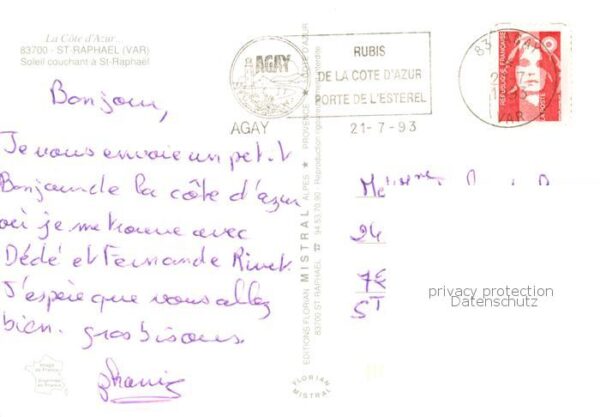 La Côte d'Azur...
83700 - ST-RAPHAEL (VAR)
Soleil couchant à St-Raphaël
Bonjour,
Je vous envoie un petit
Bonjour de la côte d'azur
où je me trouve avec
Dédé et Fernande Rinet.
J'espère que vous allez
bien. gros bisous.
AGAY
AGAY
RUBIS
DE LA COTE D'AZUR
PORTE DE L'ESTEREL
21-7-93
83 AGAY
VAR
REPUBLIQUE FRANÇAISE
LA POSTE
EDITIONS FLORIAN MISTRAL ALPES ★ PROVENCE ★ COTE D'AZUR
83700 ST RAPHAEL ☎ 94.53.70.90 Reproduction rigoureusement interdite
24
7E
ST
privacy protection
Datenschutz
Image de France
Imprimée en France
FLORIAN
MISTRAL